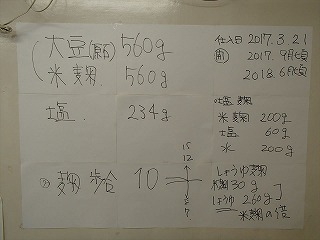 大豆(乾) 560g
米麹 560g
塩 234g
麹歩合 10
15
12
仕込日 2017.3.21
2017.9月頃
2018.6月頃
塩麹
米麹 200g
塩 60g
水 200g
しょうゆ麹
30g
しょうゆ 260g
米麹の倍